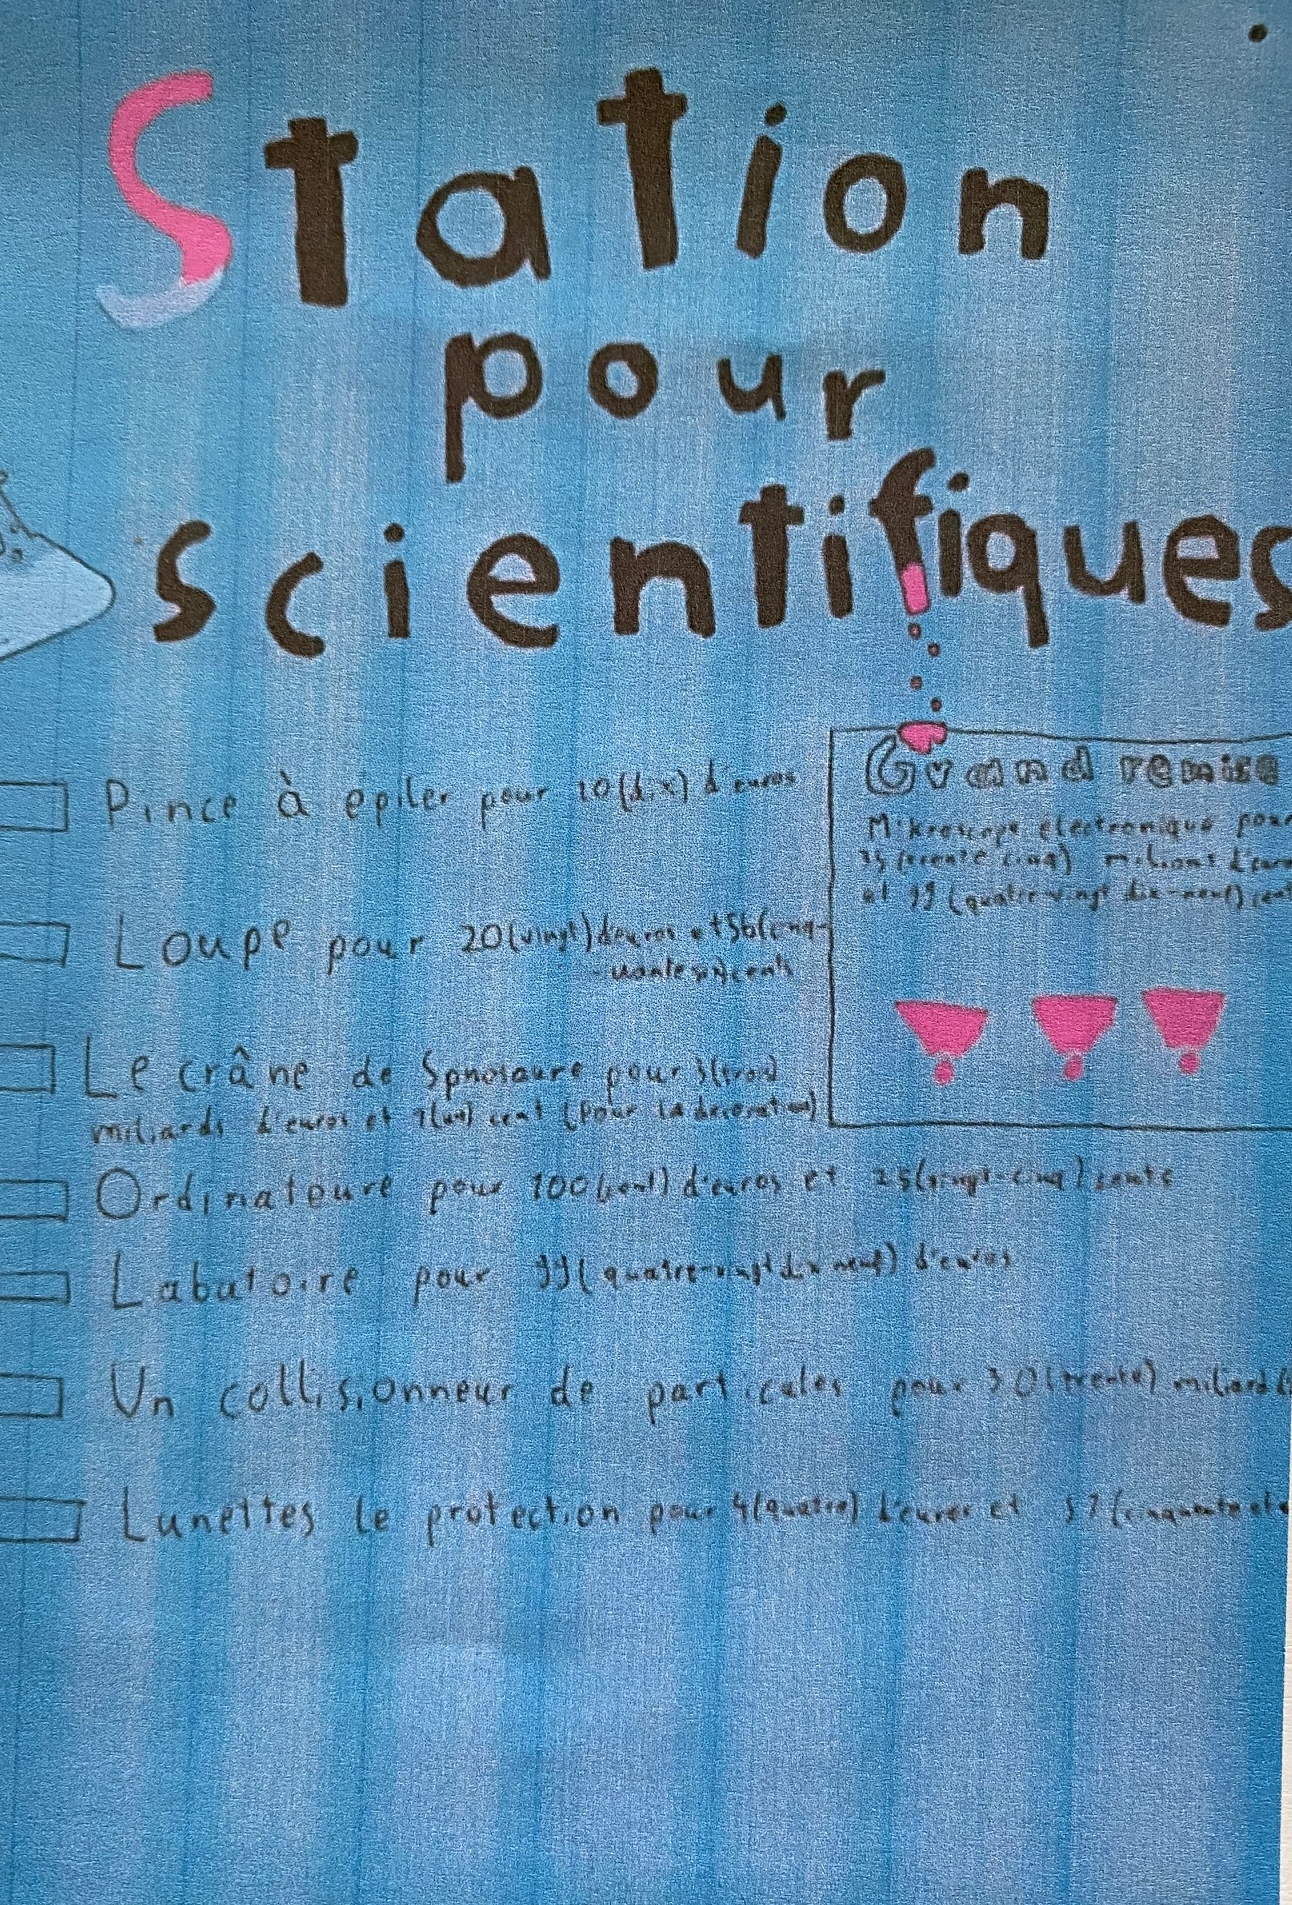 Station
pour
scientifiques
Pince à épiler pour 10(dix) d'euros
Grand remise
Mikroscope électronique pour
35 (trente cinq) milions d'euro
et 99 (quatre-vingt dix-neuf) cent
Loupe pour 20(vingt) d'euros et 56(cinq-
-uante six) cents
Le crâne de Spnosaure pour 3(trois)
miliards d'euros et 1(un) cent (pour la decoration)
Ordinateure pour 100(cent) d'euros et 25(vingt-cinq) cents
Labatoire pour 99(quatre-vingt dix neuf) d'euros
Un collisionneur de particules pour 30(trente) miliard
Lunettes de protection pour 4(quatre) d'euros et 57(cinquante